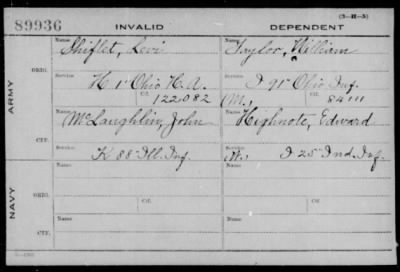 (3—H—5)
89936 INVALID DEPENDENT
Name Name
Shiflet, Levi Taylor, William
ORIG. Service Service
H. 1" Ohio H.A. I 91" Ohio Inf.
Ctf. 122.082 (M., Ctf. 84111
ARMY
Name Name
McLaughlin, John Highnote, Edward
CTF. Service Service
K 88" Ill. Inf. (M., I 25" Ind. Inf.
Name Name
ORIG. Service Service
Ctf. Ctf.
NAVY
Name Name
CTF. Service Service